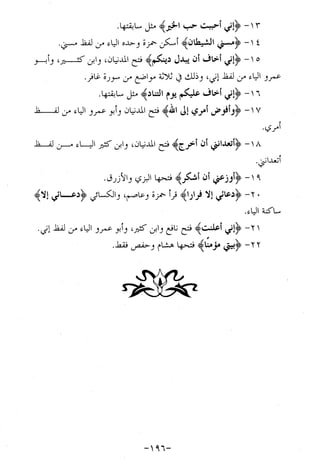 ١٣- ﴿إني أحببت حب الخير﴾ مثل سابقتها.
١٤- ﴿مسني الشيطان﴾ أسكن حمزة وحده الياء من لفظ مسني.
١٥- ﴿إني أخاف أن يبدل دينكم﴾ فتح المدنيان، وابن كثير، وأبو
عمرو الياء من لفظ إني، وذلك في ثلاثة مواضع من سورة غافر.
١٦- ﴿إني أخاف عليكم يوم التناد﴾ مثل سابقتها.
١٧- ﴿وأفوض أمري إلى الله﴾ فتح المدنيان وأبو عمرو الياء من لفظ
أمري.
١٨- ﴿أتعدانني أن أخرج﴾ فتح المدنيان، وابن كثير اليـاء مـن لفظ
أتعدانني.
١٩- ﴿أوزعني أن أشكر﴾ فتحها البزي والأزرق.
٢٠- ﴿دعائي إلا فرارا﴾ قرأ حمزة وعاصم، والكسائي ﴿دعـائي إلا﴾
ساكنة الياء.
٢١- ﴿إني أعلنت﴾ فتح نافع وابن كثير، وأبو عمرو الياء من لفظ إني.
٢٢- ﴿بيتي مؤمنا﴾ فتحها هشام وحفص فقط.
-١٩٦-